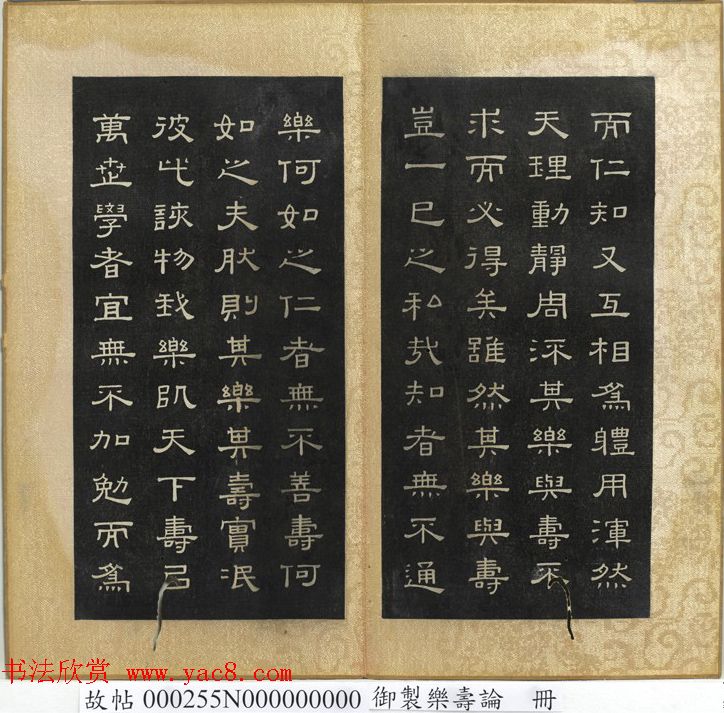 而仁知又互相為體用渾然
天理動靜周流其樂與壽不
求而必得矣雖然其樂與壽
豈一己之私哉知者無不通
樂何如之仁者無不善壽何
如之夫肰則其樂其壽實泯
彼此該物我樂以天下壽以
萬世學者宜無不加勉而為
书法欣赏 www.yac8.com
故帖 000255N000000000 御製樂壽論 冊